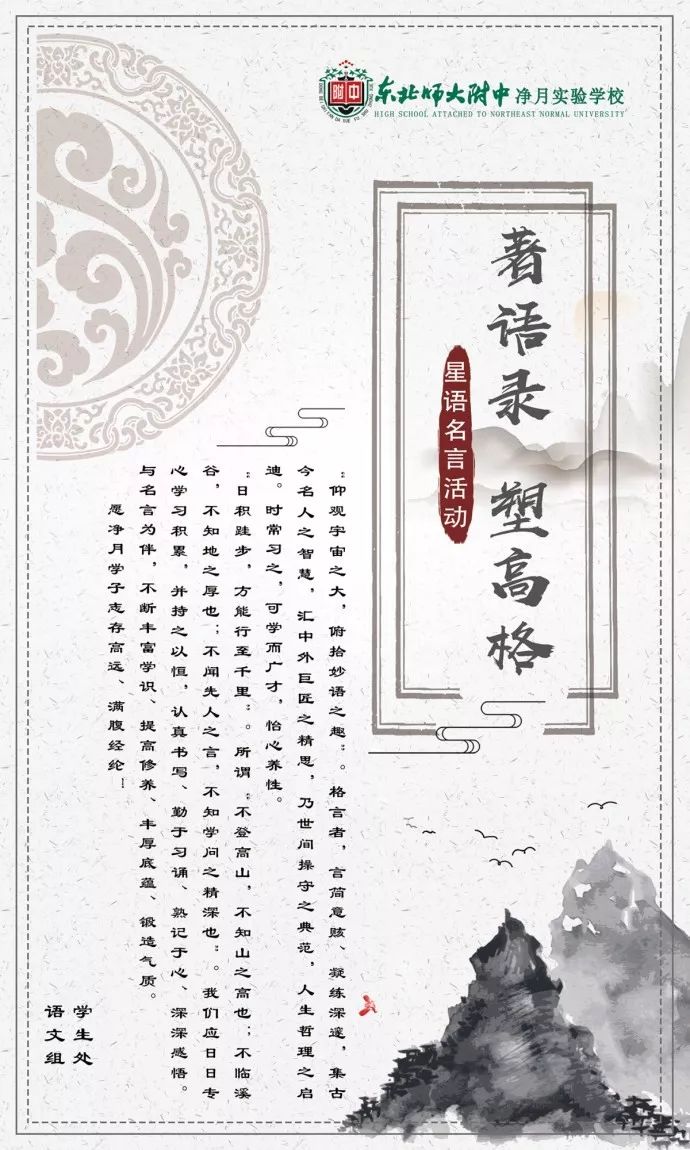 附中
东北师大附中 净月实验学校
HIGH SCHOOL ATTACHED TO NORTHEAST NORMAL UNIVERSITY
著语录 塑高格
星语名言活动
“仰观宇宙之大，俯拾妙语之趣”。格言者，言简意赅、凝练深邃，集古
今名人之智慧，汇中外巨匠之精思，乃世间操守之典范，人生哲理之启
迪。时常习之，可学而广才，怡心养性。
“日积跬步，方能行至千里”。所谓“不登高山，不知山之高也；不临溪
谷，不知地之厚也；不闻先人之言，不知学问之精深也”。我们应日日专
心学习积累，并持之以恒，认真书写、勤于习诵、熟记于心、深深感悟。
与名言为伴，不断丰富学识、提高修养、丰厚底蕴、锻造气质。
愿净月学子志存高远、满腹经纶！
学生处
语文组